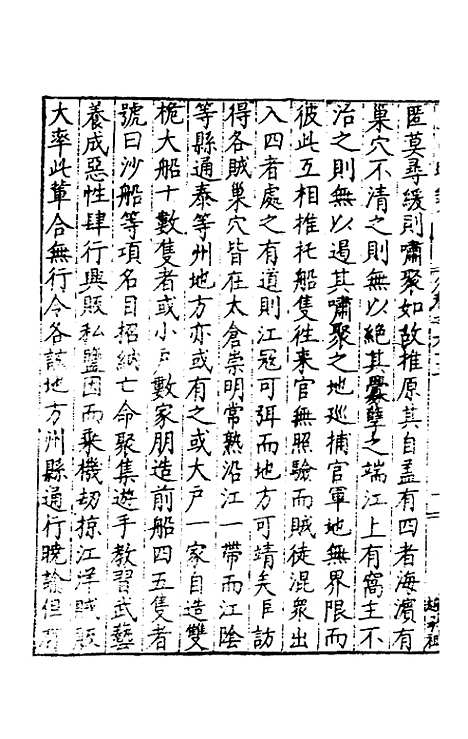 匿莫尋緩則嘯聚如故推原其自盖有四者海濱有
巢穴不清之則無以絕其釁孽之端江上有窩主不
治之則無以遏其嘯聚之地巡捕官軍地無界限而
彼此互相推托船隻往来官無照驗而賊徒混衆出
入四者處之有道則江冦可弭而地方可靖矣臣訪
得各賊巢穴皆在太倉崇明常熟沿江一帶而江陰
等縣通泰等州地方亦或有之或大戶一家自造雙
桅大船十數隻者或小戶數家朋造前船四五隻者
號曰沙船等項名目招納亡命聚集遊手教習武藝
養成惡性肆行興販私鹽因而乘機刼掠江洋賊販
大率此軰合無行令各該地方州縣通行曉諭但